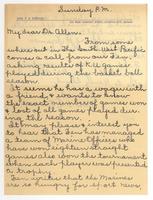 Sunday P.M.
My dear Dr. Allen:
From some
where out in The South West Pacific
comes a call, from our son,
asking results of K.U. games
played during the basket ball
season.
It seems he has a wager with
a friend, & wants to know
the exact number of games won
& lost of all games played dur-
ing the season.
It may please & interest you
to hear that Jen has managed
a team of Marine Officers who
have won eighteen straight
games also won the tournament
when each player was presented
a trophy.
I'm sure that the Marines
are so hungry for sport news